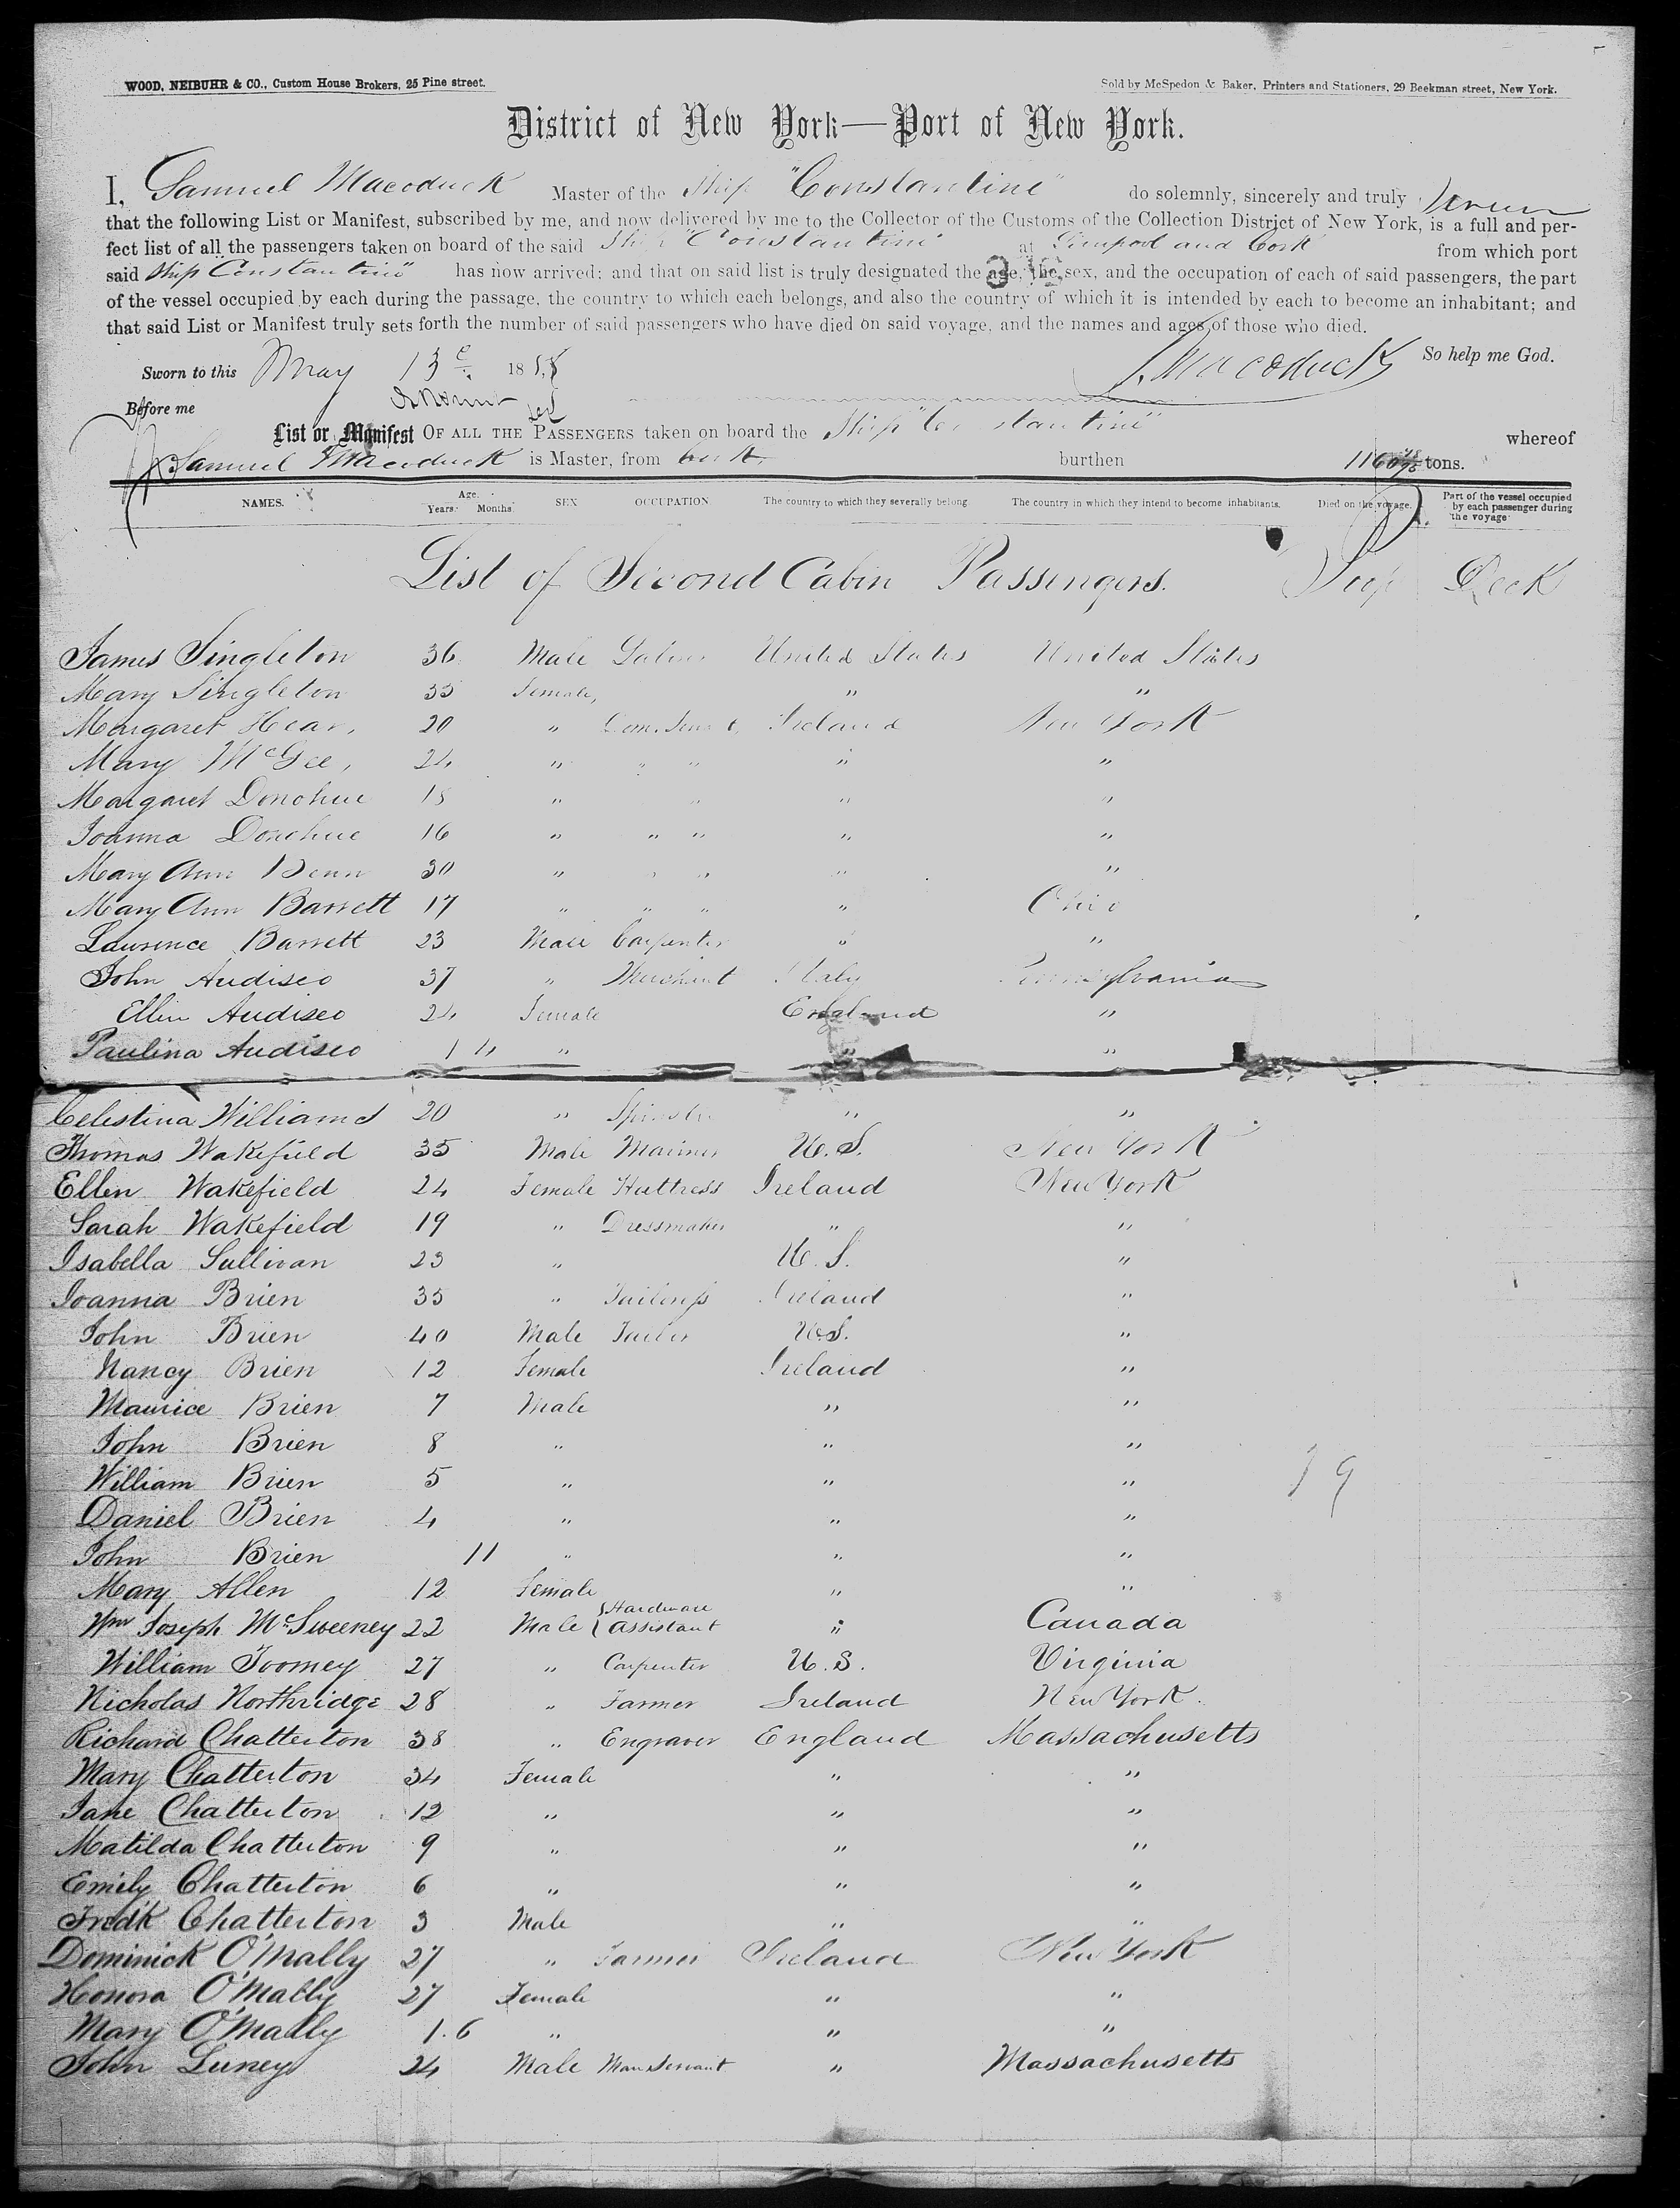 WOOD, NEIBUHR & CO., Custom House Brokers, 25 Pine street.
Sold by McSpedon & Baker, Printers and Stationers, 29 Beekman street, New York.
District of New York—Port of New York.
I, Samuel Macoduck Master of the Ship "Constantine" do solemnly, sincerely and truly
that the following List or Manifest, subscribed by me, and now delivered by me to the Collector of the Customs of the Collection District of New York, is a full and per-
fect list of all the passengers taken on board of the said Ship "Constantine" at Liverpool and Cork from which port
said Ship "Constantine" has now arrived; and that on said list is truly designated the age, the sex, and the occupation of each of said passengers, the part
of the vessel occupied by each during the passage, the country to which each belongs, and also the country of which it is intended by each to become an inhabitant; and
that said List or Manifest truly sets forth the number of said passengers who have died on said voyage, and the names and ages of those who died.
So help me God.
Sworn to this May 13 1858 S. Macoduck
Before me
List or Manifest OF ALL THE PASSENGERS taken on board the Ship "Constantine" whereof
Samuel Macoduck is Master, from burthen tons.
NAMES. Age. Years. Months. SEX OCCUPATION. The country to which they severally belong. The country in which they intend to become inhabitants. Died on the voyage. Part of the vessel occupied by each passenger during the voyage
List of Second Cabin Passengers. Poop Deck
James Singleton 36 Male United States United States
Mary Singleton 35 Female, " "
Margaret 20 " Ireland New York
Mary McGee, 24 " " " " "
Margaret Donohue 18 " " " "
Joanna Donohue 16 " " " " "
Mary Ann 30 " " " " "
Mary Ann Barrett 17 " " " " Ohio
Lawrence Barrett 23 Male Carpenter " "
John Audiseo 37 " Merchant Italy Pennsylvania
Ellen Audiseo 24 Female England "
Paulina Audiseo 1 4 " " "
Celestina Williams 20 " Spinster " "
Thomas Wakefield 35 Male Mariner U.S. New York
Ellen Wakefield 24 Female Ireland New York
Sarah Wakefield 19 " Dressmaker " "
Isabella Sullivan 23 " U.S. "
Joanna Brien 35 " Tailoress Ireland "
John Brien 40 Male Tailor U.S. "
Nancy Brien 12 Female Ireland "
Maurice Brien 7 Male " "
John Brien 8 " " "
William Brien 5 " " "
Daniel Brien 4 " " "
John Brien 11 " " "
Mary Allen 12 Female " "
Wm Joseph McSweeney 22 Male { Hardware Assistant " Canada
William Toomey 27 " Carpenter U.S. Virginia
Nicholas Northridge 28 " Farmer Ireland New York.
Richard Chatterton 38 " Engraver England Massachusetts
Mary Chatterton 34 Female " "
Jane Chatterton 12 " " "
Matilda Chatterton 9 " " "
Emily Chatterton 6 " " "
Fredk Chatterton 3 Male " "
Dominick O'Mally 27 " Farmer Ireland New York
Honora O'Mally 27 Female " "
Mary O'Mally 1.6 " " "
John Luney 24 Male Man Servant " Massachusetts